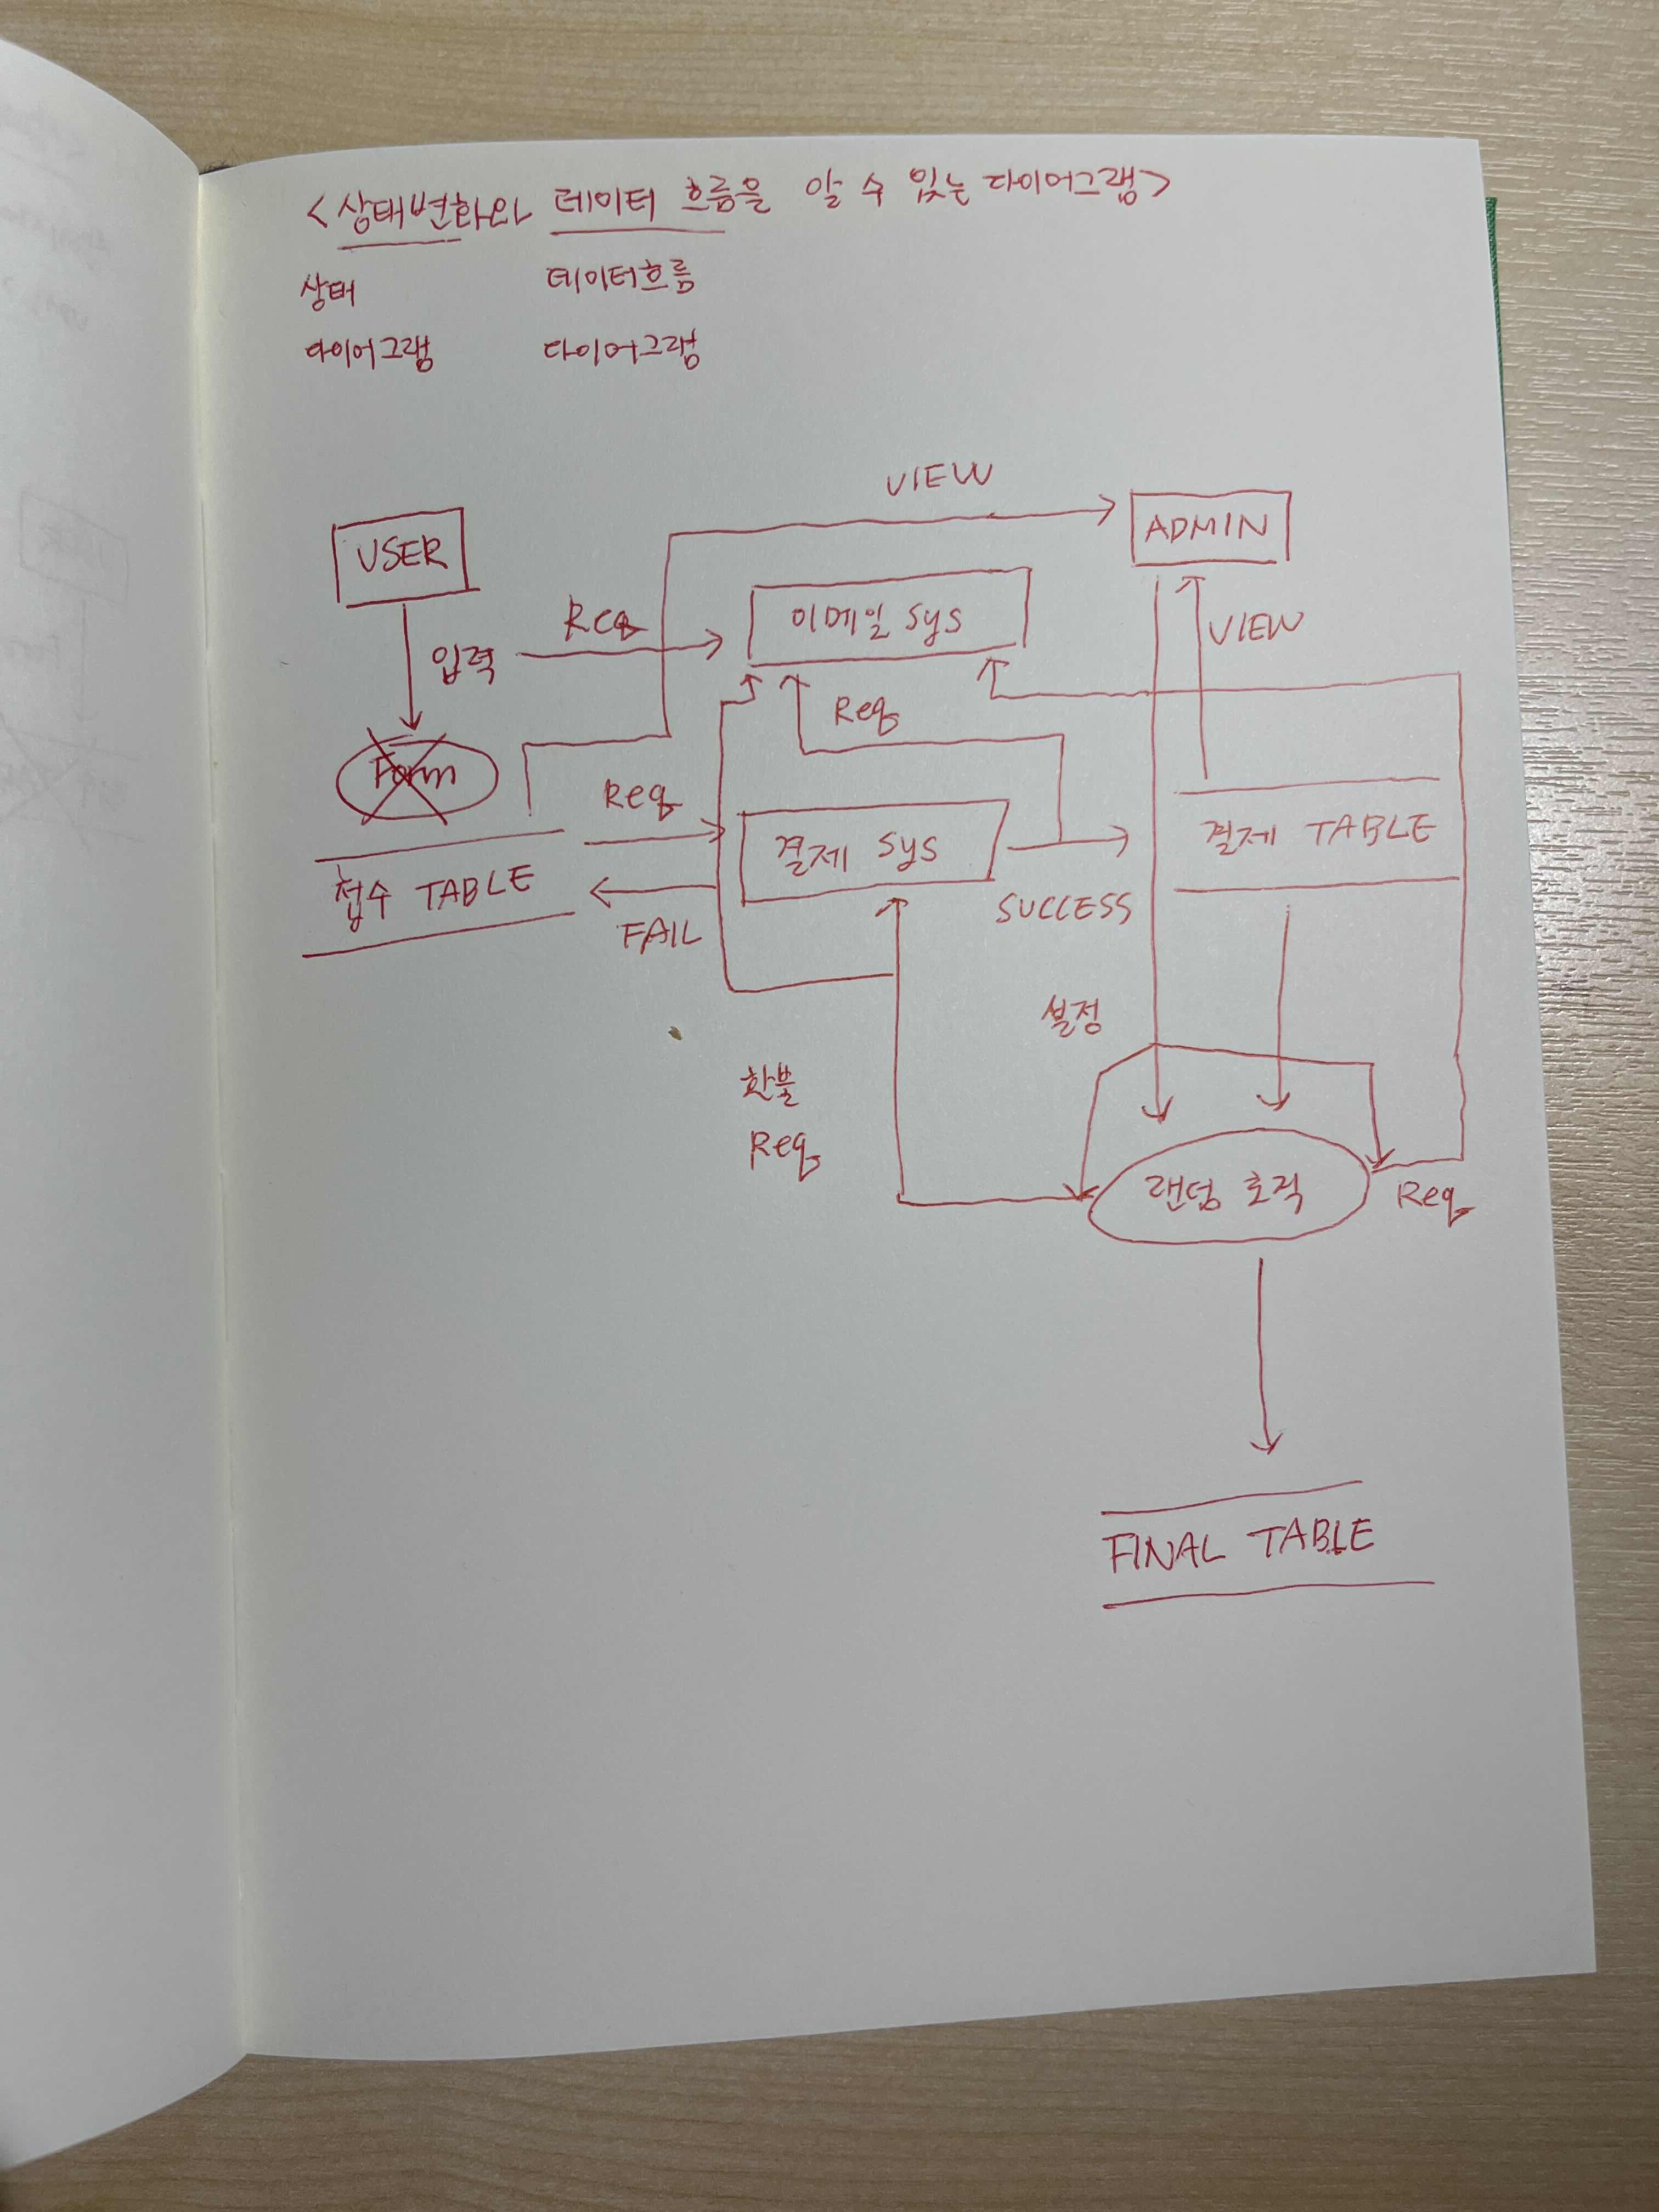 <상태변화와 데이터 흐름을 알 수 있는 다이어그램>
상태 데이터흐름
다이어그램 다이어그램
VIEW
USER
ADMIN
Req
이메일 sys
입력
VIEW
Req
Form
Req
결제 sys
결제 TABLE
접수 TABLE
FAIL
SUCCESS
설정
환불
Req
랜덤 로직
Req
FINAL TABLE